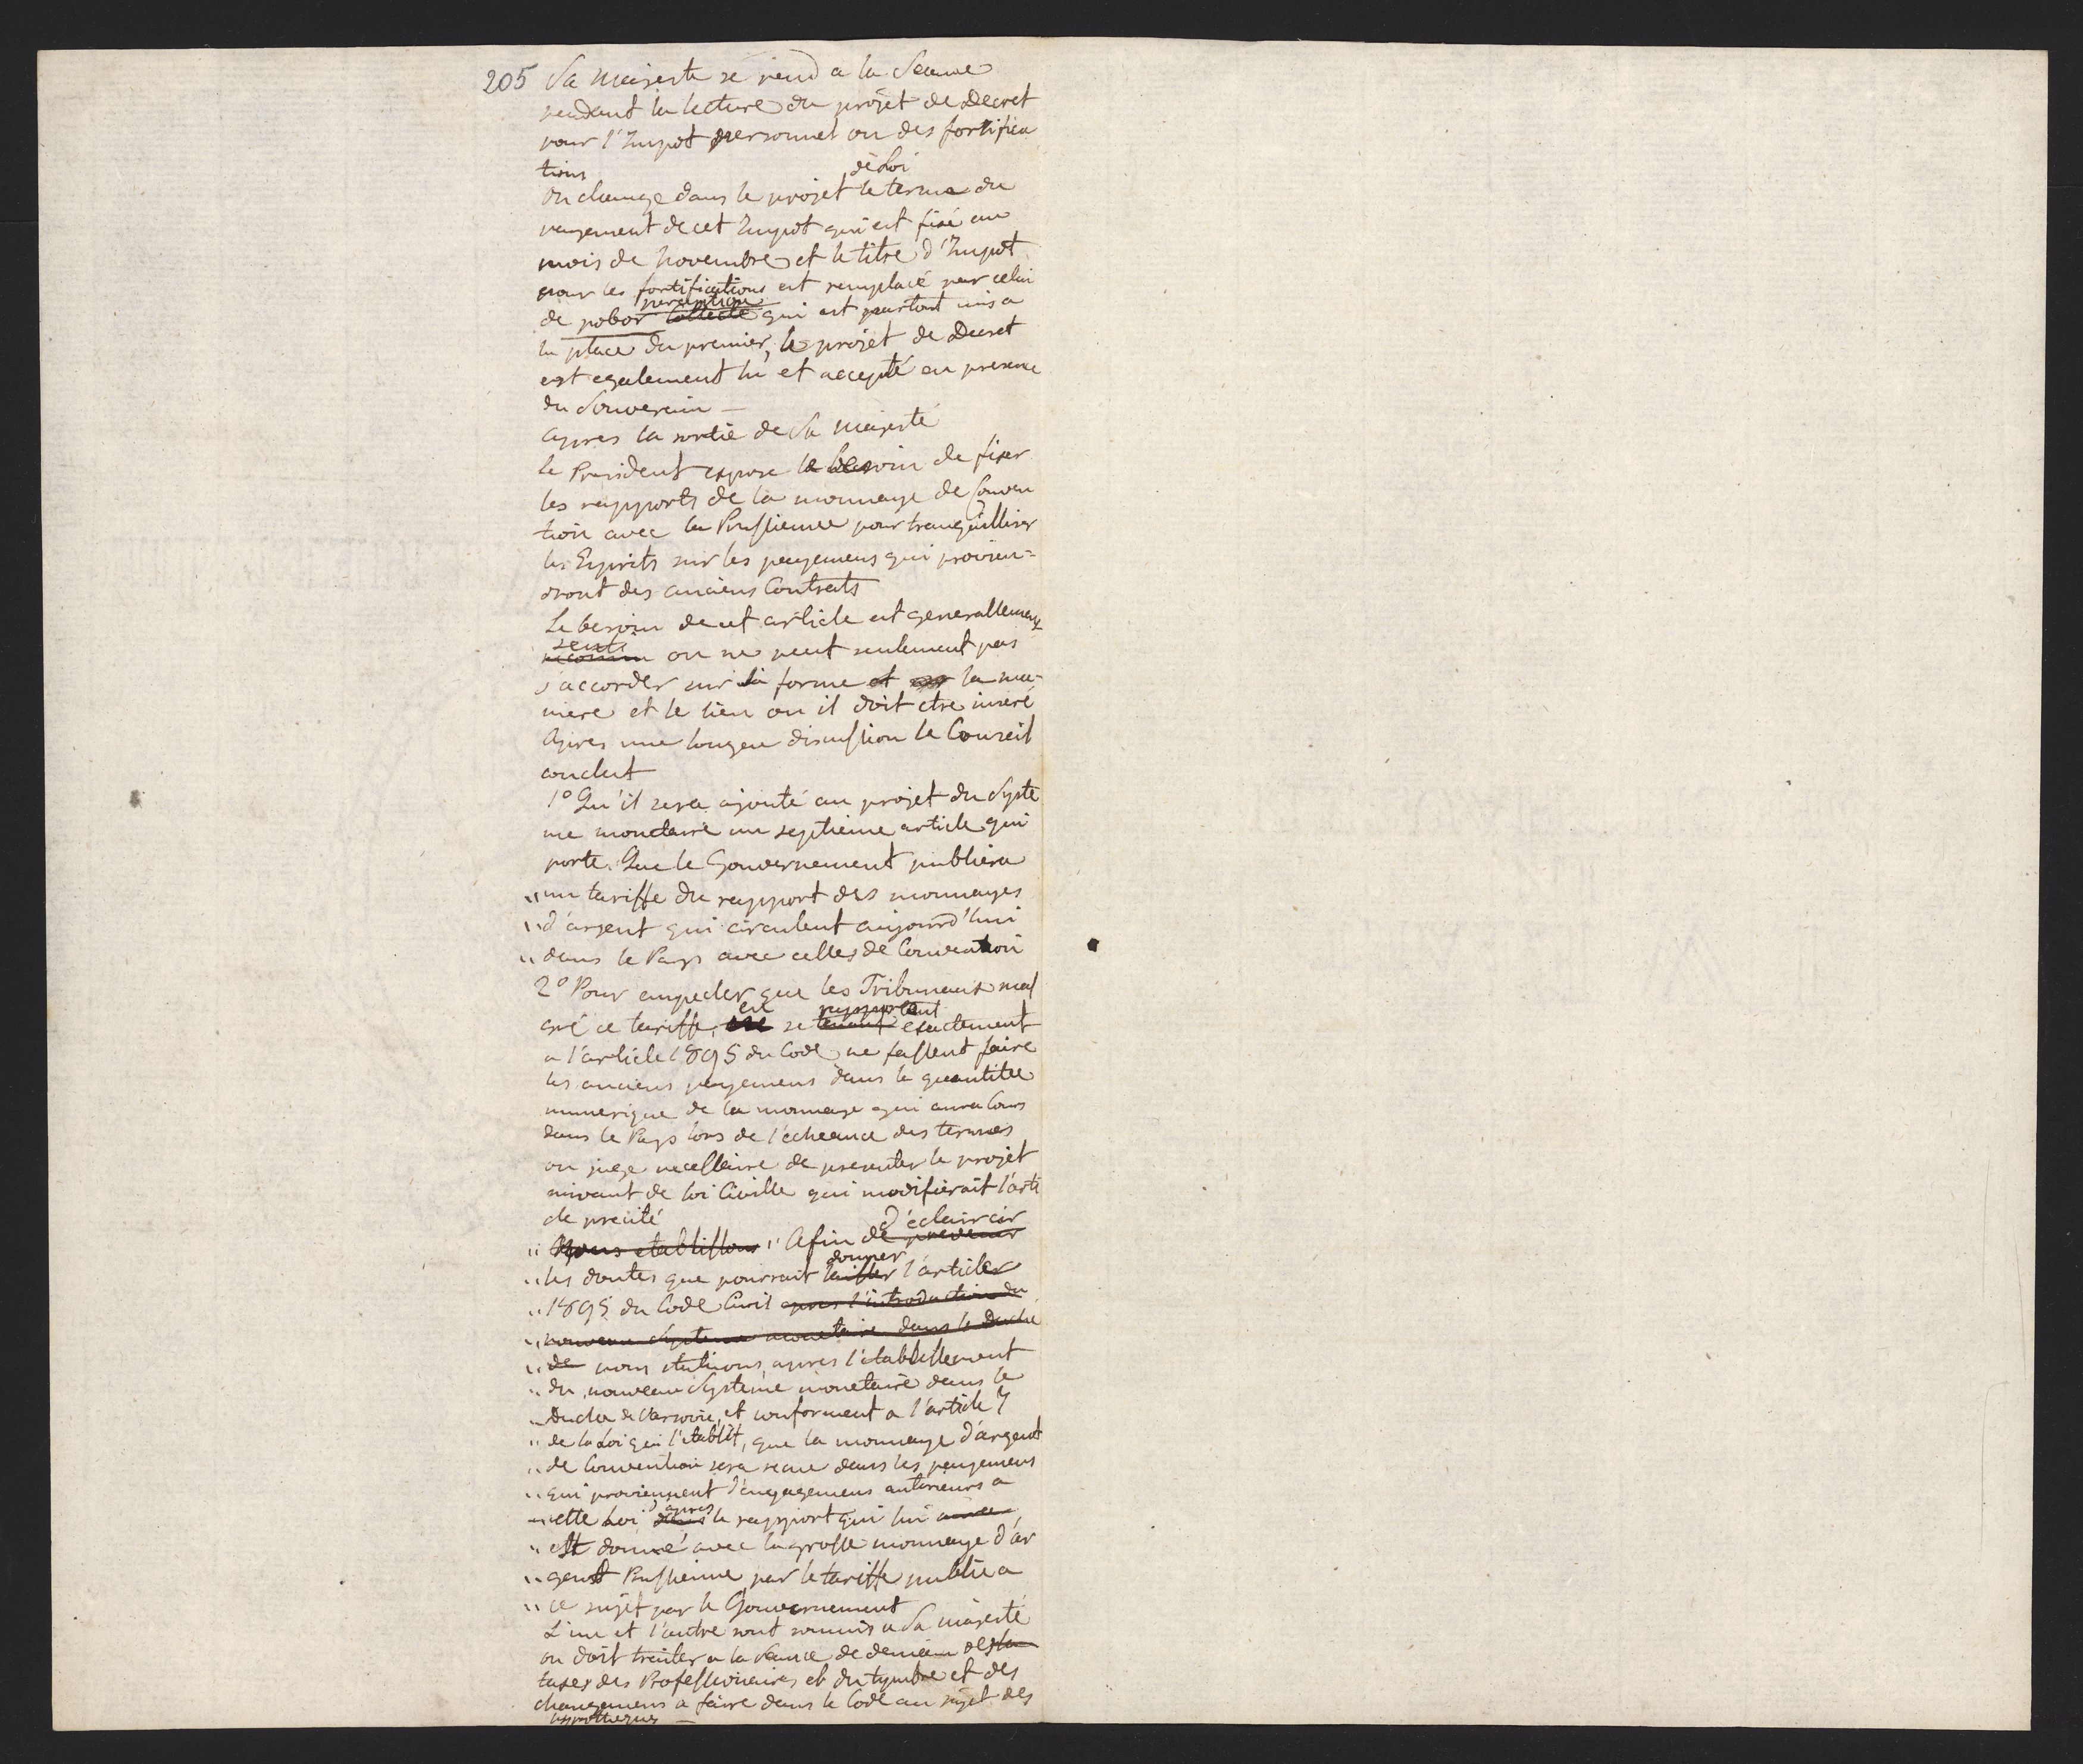 205 Sa Majesté se rend a la Seance
pendant la lecture du projet de Decret
pour l'Impot personnel ou des fortifica
tions
de Loi
On change dans le projet le terme du
payement de cet Impot qui est fixé au
mois de Novembre et le titre d'Impot
pour les fortifications est remplacé par celui
perception
de pobor Collecte qui est partout mis a
la place du premier, le projet de Decret
est egalement lu et accepté en presence
du Souverain —
Apres la sortie de Sa Majesté
le President expose le besoin de fixer
les rapports de la monnaye de Conven
tion avec la Prussienne pour tranquilliser
les Esprits sur les payemens qui provien=
dront des anciens Contrats
Le besoin de cet article est generallement
senti
reconnu on ne peut seulement pas
s'accorder sur la forme et sur la ma-
niere et le lieu ou il doit etre inseré
Apres une longue discussion le Conseil
conclut
1° Qu'il sera ajouté au projet du Syste
me monetaire un septieme article qui
porte. Que le Gouvernement publiera
"un tariffe du rapport des monnayes
"d'argent qui circulent aujourd'hui
"dans le Pays avec celles de Convention
2° Pour empecher que les Tribunaux mal
en rapportant
gré ce tariffe, se tenant exactement
a l'article 1895 du Code ne fassent faire
les anciens payemens dans la quantitee
numerique de la monnaye qui aura Cours
dans le Pays lors de l'echeance des termes
on juge necessaire de presenter le projet
suivant de loi Civille qui modifierait l'arti
cle precité
d'éclaircir
" Nous etablissons " Afin de prevenir
donner
"les doutes que pourrait laisser l'article
"1895 du Code Civil apres l'introduction du
"nouveau Systeme monetaire dans le Duché
"de nous statuons, apres l'etablissement
"du nouveau Systeme monetaire dans le
"Duché de Varsovie, et conforment a l'article 7
"de la Loi qui l'etablit, que la monnaye d'argent
"de Convention sera recue dans les payemens
"qui proviennent d'engagemens anterieurs a
d'apres
"cette Loi dans le rapport qui lui aura
"est donné avec la grosse monnaye d'ar
"gent Prussienne par le tariffe publié a
"ce sujet par le Gouvernement
L'une et l'autre sont soumis a Sa Majesté
on doit traiter a la Seance de demain de la
taxes des Professionaires et du tymbre et des
changemens a faire dans le Code au sujet des
hypotheques —